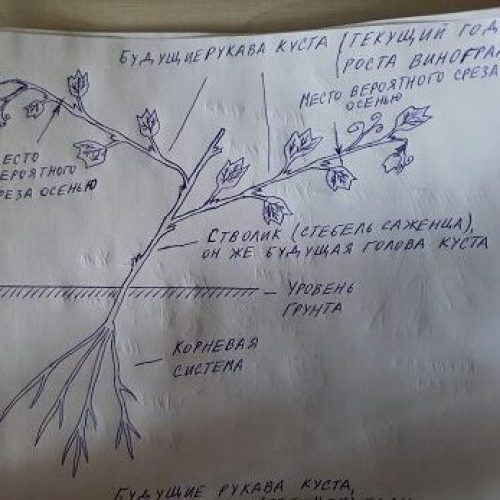 БУДУЩИЕ РУКАВА КУСТА (ТЕКУЩИЙ ГОД
РОСТА
МЕСТО ВЕРОЯТНОГО СРЕЗА
ОСЕНЬЮ
СРЕЗА ОСЕНЬЮ
СТВОЛИК (СТЕБЕЛЬ САЖЕНЦА),
ОН ЖЕ БУДУЩАЯ ГОЛОВА КУСТА
УРОВЕНЬ
ГРУНТА
КОРНЕВАЯ
СИСТЕМА
БУДУЩИЕ РУКАВА КУСТА,